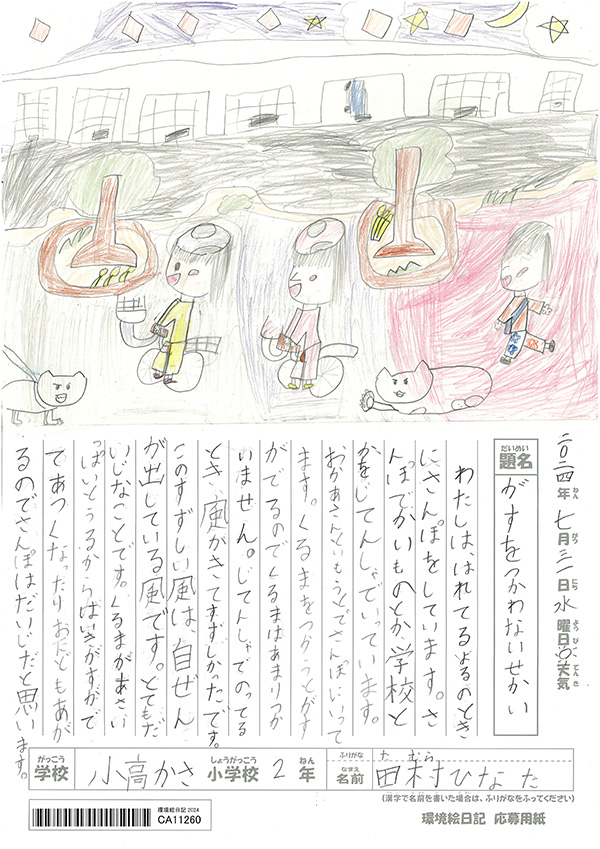 二〇二四年ねん 七月がつ 三一日にち 水曜ようび日 天てん気き
題名だいめい がすをつかわないせかい
わたしははれてるよるのとき
にさんぽをしています。さ
んぽでかいものとか学校と
かをじてんしゃでいっています。
おかあさんといもうとでさんぽにいって
ます。くるまをつかうとがす
がでるのでくるまはあまりつか
いません。じてんしゃでのってる
とき風がきてすずしかったです。
このすずしい風は、自ぜん
が出している風です。とてもだ
いじなことです。くるまがあさい
っぱいとうるからはいきがすがで
てあつくなったりおだともあが
るのでさんぽはだいじだと思います。
学校がっこう 小高かさ 小学校しょうがっこう 2 年ねん
ふりがな た むら
名前なまえ 田村ひなた
(漢字で名前を書いた場合は、ふりがなをふってください)
環境絵日記 2024
CA11260
環境絵日記 応募用紙